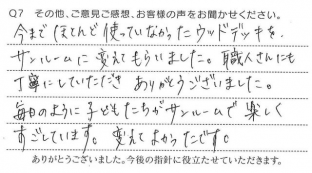 Q7 その他、ご意見ご感想、お客様の声をお聞かせください。
今までほとんど使っていなかったウッドデッキを、
サンルームに変えてもらいました。職人さんにも
丁寧にしていただきありがとうございました。
毎日のように子どもたちがサンルームで楽しく
すごしています。変えてよかったです。
ありがとうございました。今後の指針に役立たせていただきます。